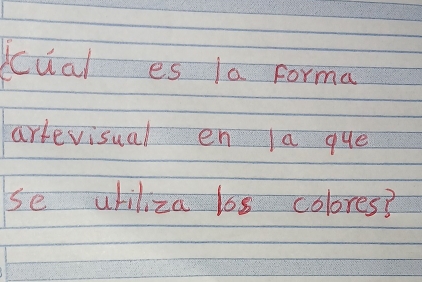 ¿Cúal es la Forma
artevisual en la que
se utiliza los colores?